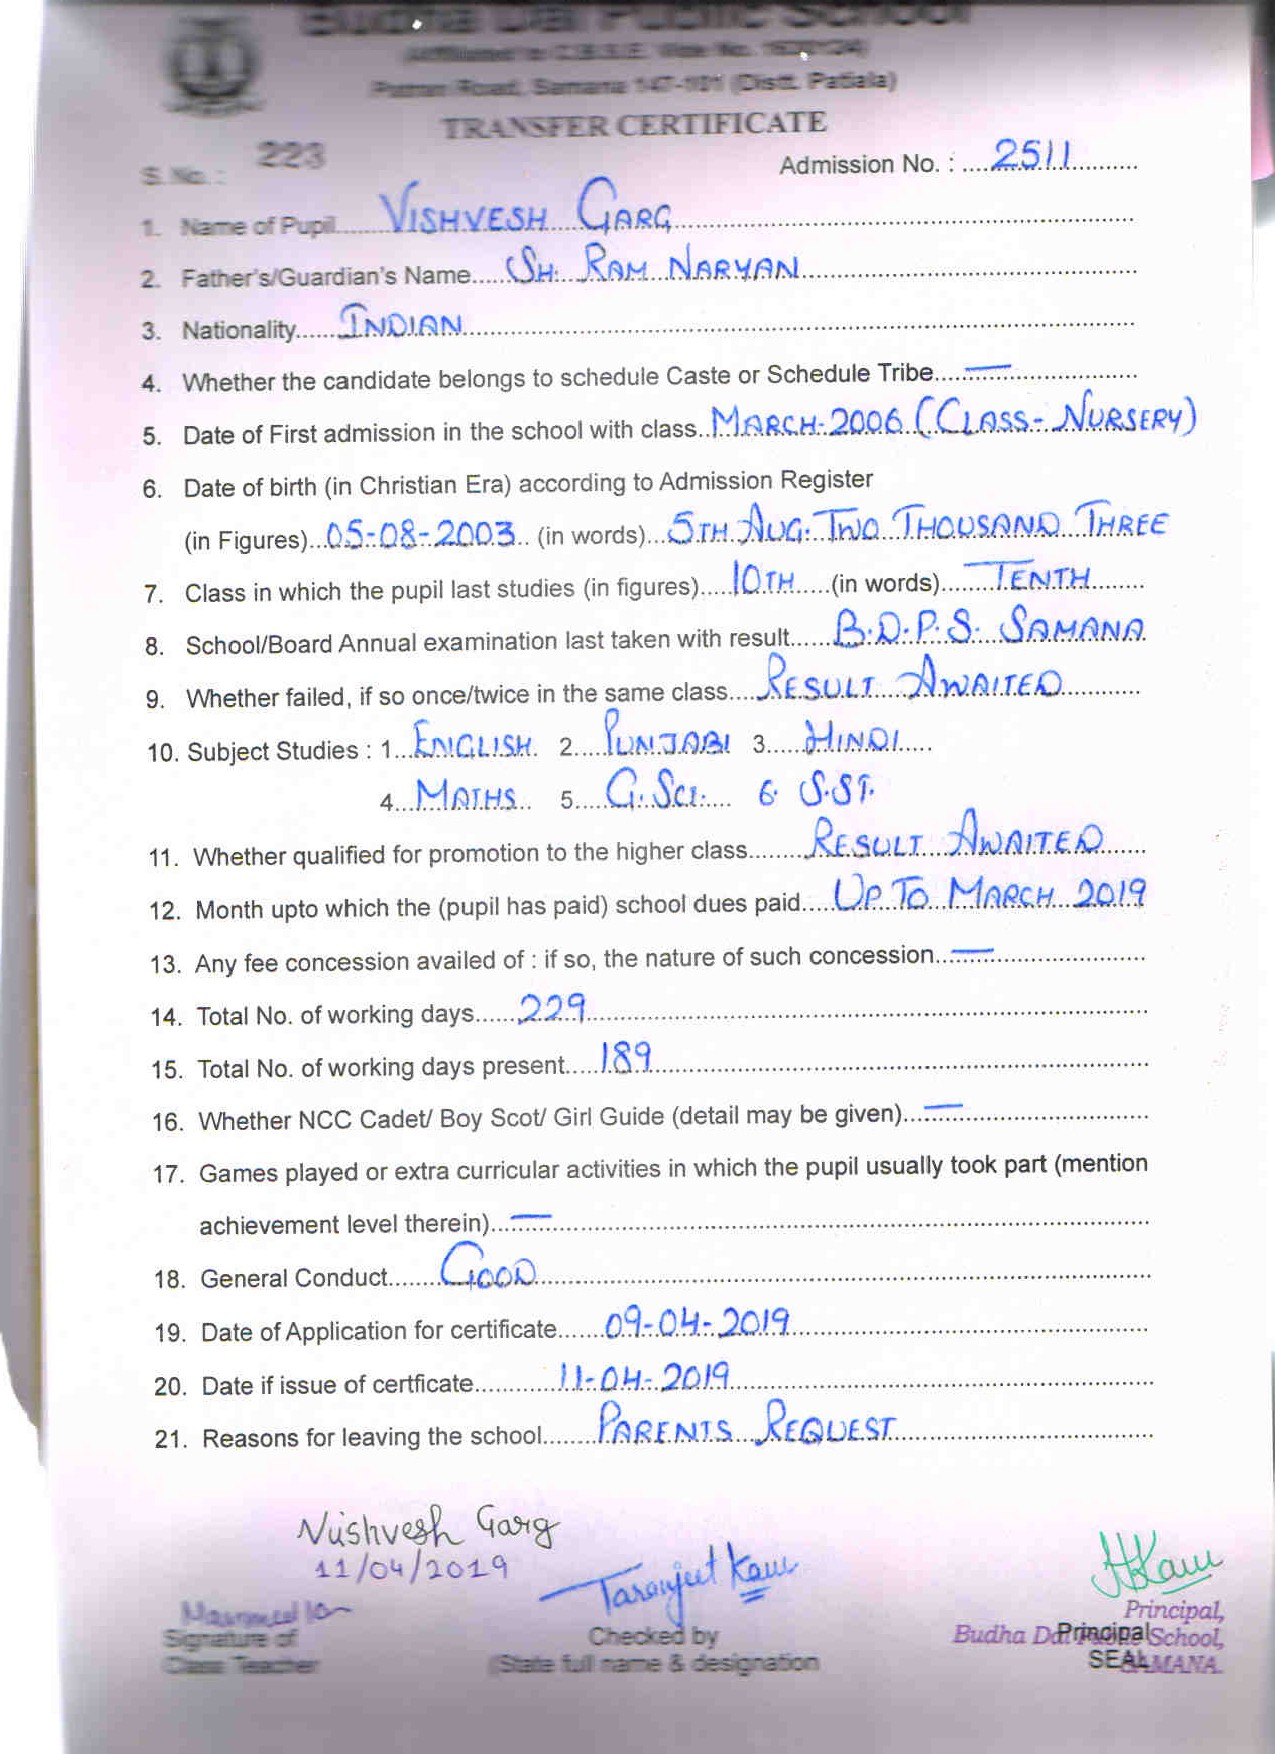 Budha Dal Public School
Affiliated to C.B.S.E. Vide No.
Patran Road, Samana 147-101 (Distt. Patiala)
TRANSFER CERTIFICATE
S. No. : 223 Admission No. : ....2511
1. Name of Pupil VISHVESH GARG
2. Father's/Guardian's Name SH. RAM NARYAN
3. Nationality INDIAN
4. Whether the candidate belongs to schedule Caste or Schedule Tribe —
5. Date of First admission in the school with class MARCH-2006 (CLASS-NURSERY)
6. Date of birth (in Christian Era) according to Admission Register
(in Figures) 05-08-2003 (in words) 5TH AUG. TWO THOUSAND THREE
7. Class in which the pupil last studies (in figures) 10TH (in words) TENTH
8. School/Board Annual examination last taken with result B.D.P.S. SAMANA
9. Whether failed, if so once/twice in the same class RESULT AWAITED
10. Subject Studies : 1. ENGLISH 2. PUNJABI 3. HINDI
4. MATHS 5. G.SCI. 6. S.ST.
11. Whether qualified for promotion to the higher class RESULT AWAITED
12. Month upto which the (pupil has paid) school dues paid UP TO MARCH 2019
13. Any fee concession availed of : if so, the nature of such concession —
14. Total No. of working days 229
15. Total No. of working days present 189
16. Whether NCC Cadet/ Boy Scot/ Girl Guide (detail may be given) —
17. Games played or extra curricular activities in which the pupil usually took part (mention
achievement level therein) —
18. General Conduct GOOD
19. Date of Application for certificate 09-04-2019
20. Date if issue of certficate 11-04-2019
21. Reasons for leaving the school PARENTS REQUEST
Vishvesh Garg
11/04/2019
Taranjeet Kaur
Signature of
Class Teacher
Checked by
(State full name & designation
Principal,
Budha Dal School,
SAMANA.
Principal
SEAL